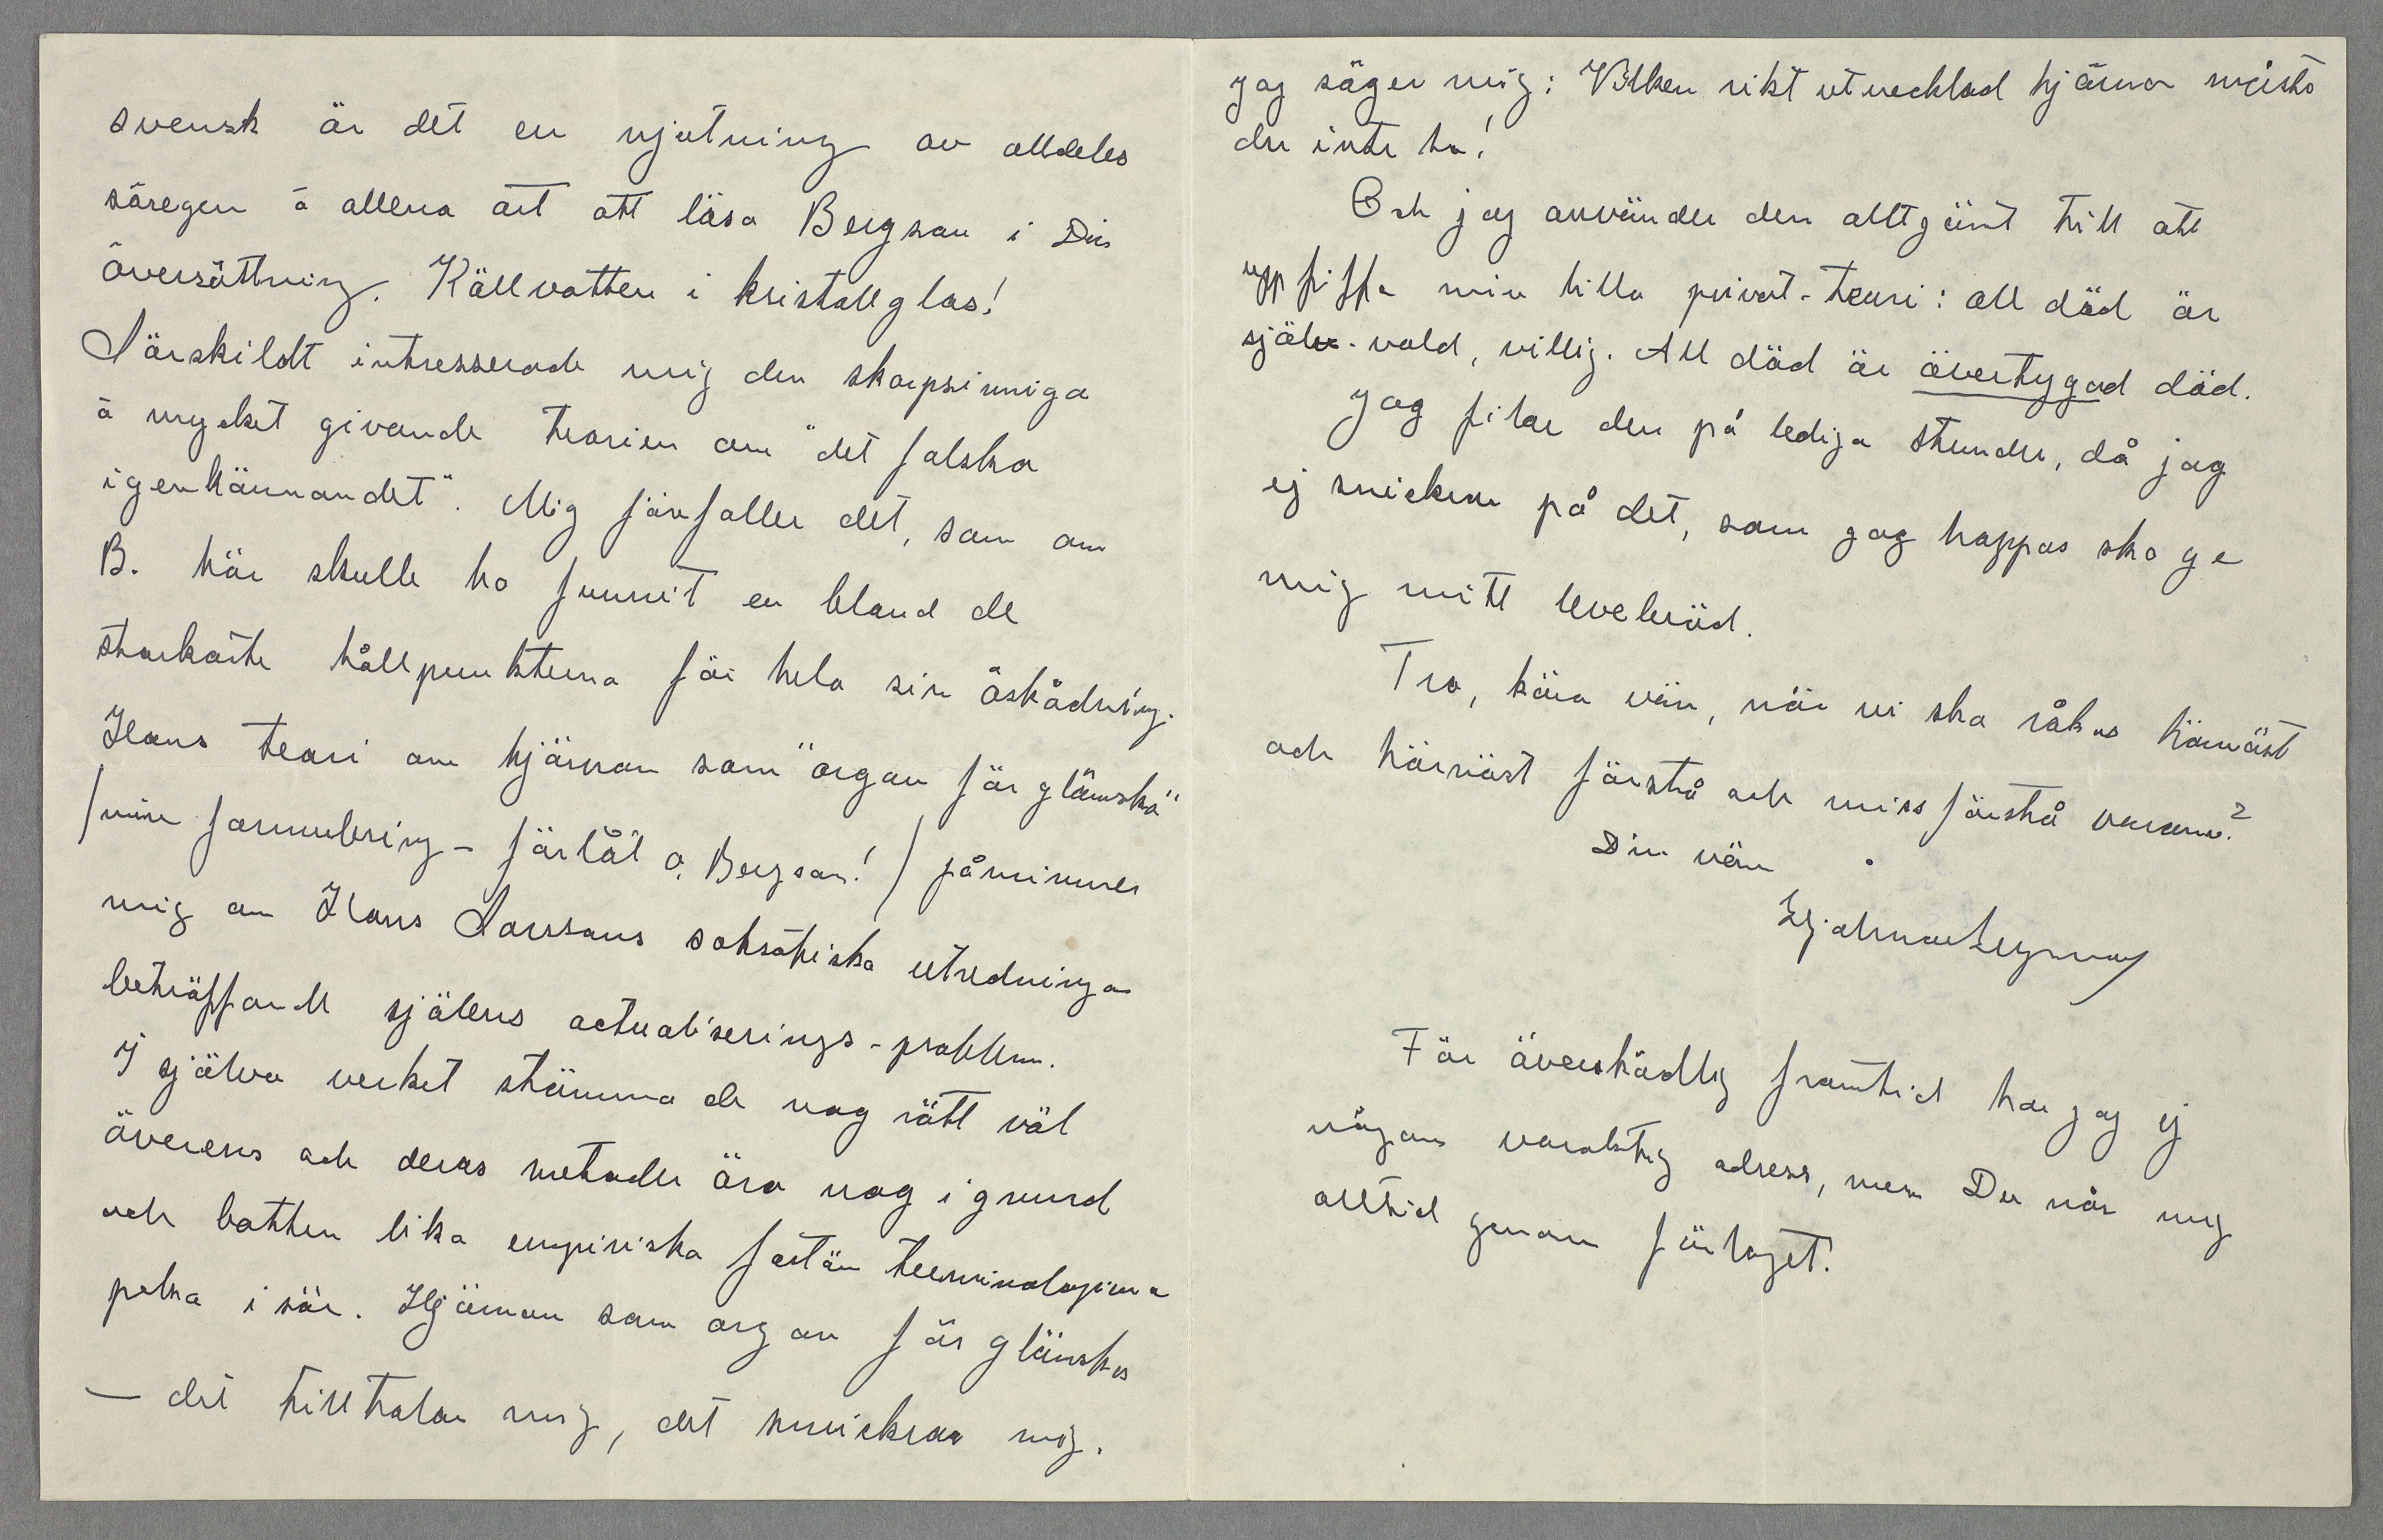 svensk är det en njutning av alldeles
säregen å allena art att läsa Bergson i Din
översättning. Källvatten i kristallglas!
Särskildt intresserade mig den skarpsinniga
å mycket givande teorien om "det falska
igenkännandet". Mig förefaller det, som om
B. här skulle ha funnit en bland de
starkaste hållpunkterna för hela sin åskådning.
Hans teori om hjärnan som "organ för glömska"
/min formulering – förlåt o, Bergson!/ påminner
mig om Hans Larssons sokratiska utredningar
beträffande själens actualiserings-problem.
I själva verket stämma de nog rätt väl
överens och deras metoder äro nog i grund
och botten lika empiriska fastän terminologierna
peka isär. Hjärnan som organ för glömska
— det tilltalar mig, det smickrar mig.
jag säger mig: Vilken rikt utvecklad hjärna måste
du inte ha!
Och jag använder den alltjämt till att
uppfiffa min lilla privat-teori: all död är
själv-vald, villig. All död är övertygad död.
Jag filar den på lediga stunder, då jag
ej snickrar på det, som jag hoppas ska ge
mig mitt levebröd.
Tro, kära vän, när vi ska råkas härnäst
och härnäst förstå och missförstå varann?
Din vän
Hjalmar Gullberg
För överskådlig framtid har jag ej
någon varaktig adress, men Du når mig
alltid genom förlaget.